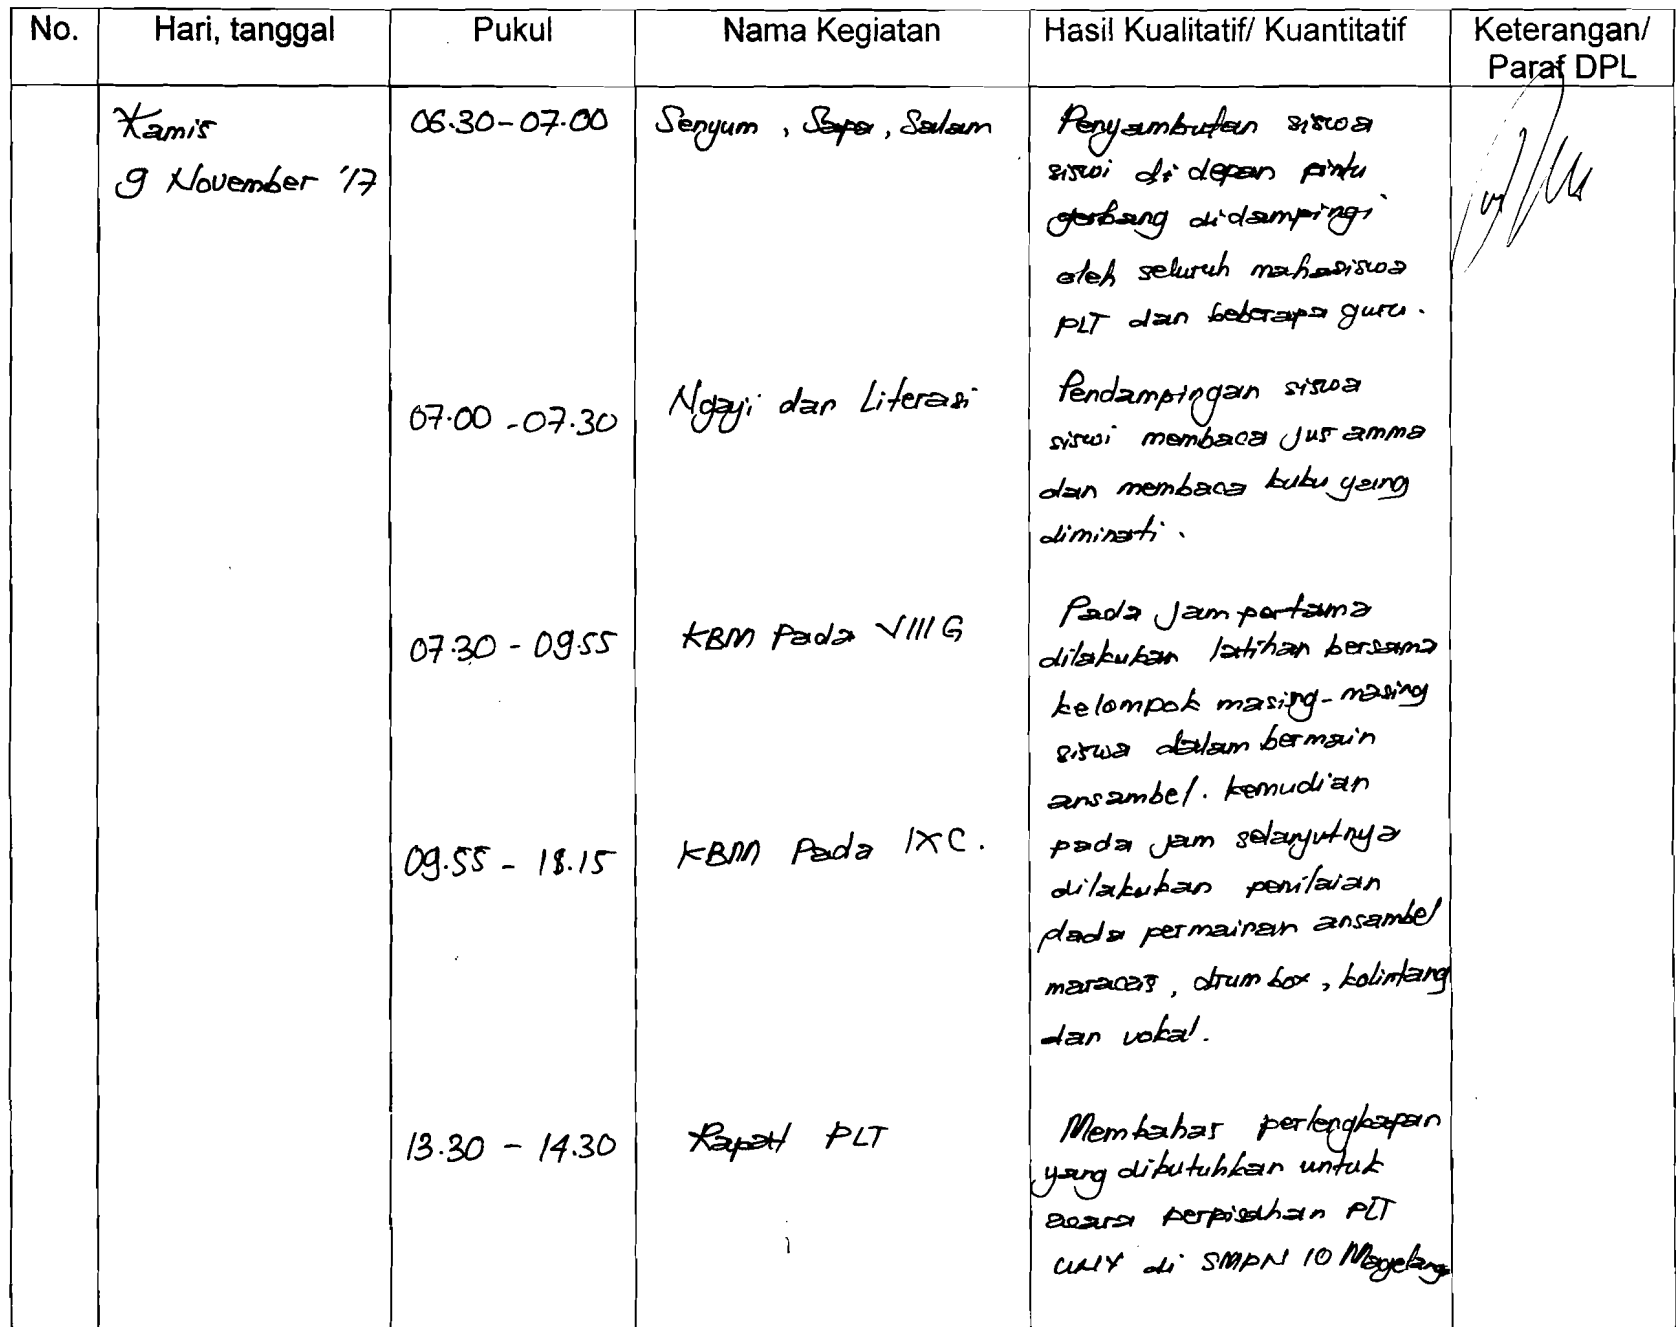 No.
Hari, tanggal
Pukul
Nama Kegiatan
Hasil Kualitatif/ Kuantitatif
Keterangan/
Paraf DPL
Kamis
9 November '17
06.30-07.00
Senyum, Sapa, Salam
Penyambutan siswa
siswi di depan pintu
gerbang didampingi
oleh seluruh mahasiswa
PLT dan beberapa guru.
07.00-07.30
Ngaji dan Literasi
Pendampingan siswa
siswi membaca jus amma
dan membaca buku yang
diminati.
07.30 - 09.55
KBM Pada VIII G
Pada jam pertama
dilakukan latihan bersama
kelompok masing-masing
siswa dalam bermain
ansambel. kemudian
09.55 - 15
KBM Pada IXC.
pada jam selanjutnya
dilakukan penilaian
pada permainan ansambel
maracas, drum box, kolintang
dan vokal.
13.30 - 14.30
Rapat PLT
Membahas perlengkapan
yang dibutuhkan untuk
acara perpisahan PLT
UNY di SMPN 10 Magelang